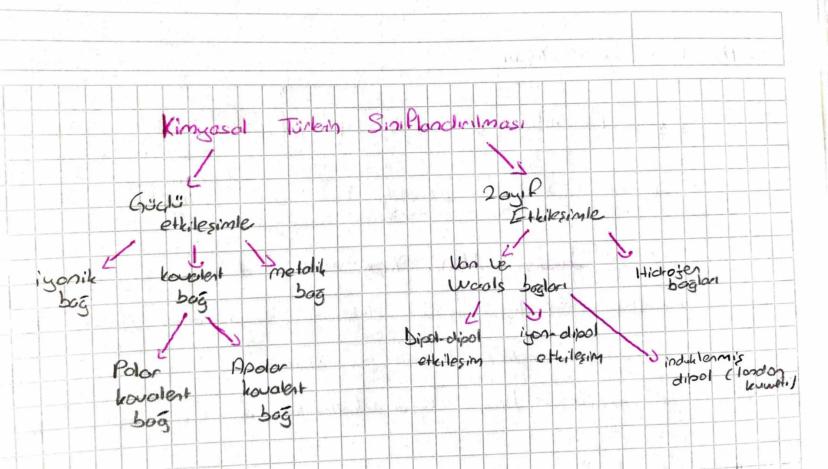 Kimyasal Türlerin Sınıflandırılması
Güçlü
etkileşimle
Zayıf
Etkileşimle
iyonik
bağ
kovalent
bağ
metalik
bağ
Van ve
Waals bağları
Hidrojen
bağları
Polar
kovalent
bağ
Apolar
kovalent
bağ
Dipol-dipol
etkileşim
iyon-dipol
etkileşim
induklenmiş
dipol (london
kuvveti)